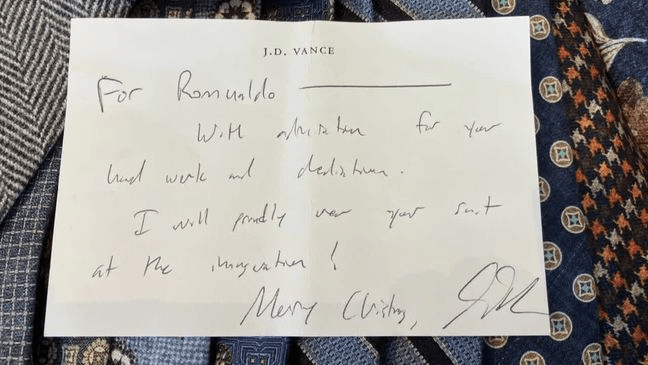 J.D. VANCE
For Romualdo
With admiration for your
hard work and dedication.
I will proudly wear your suit
at the inauguration!
Merry Christmas,